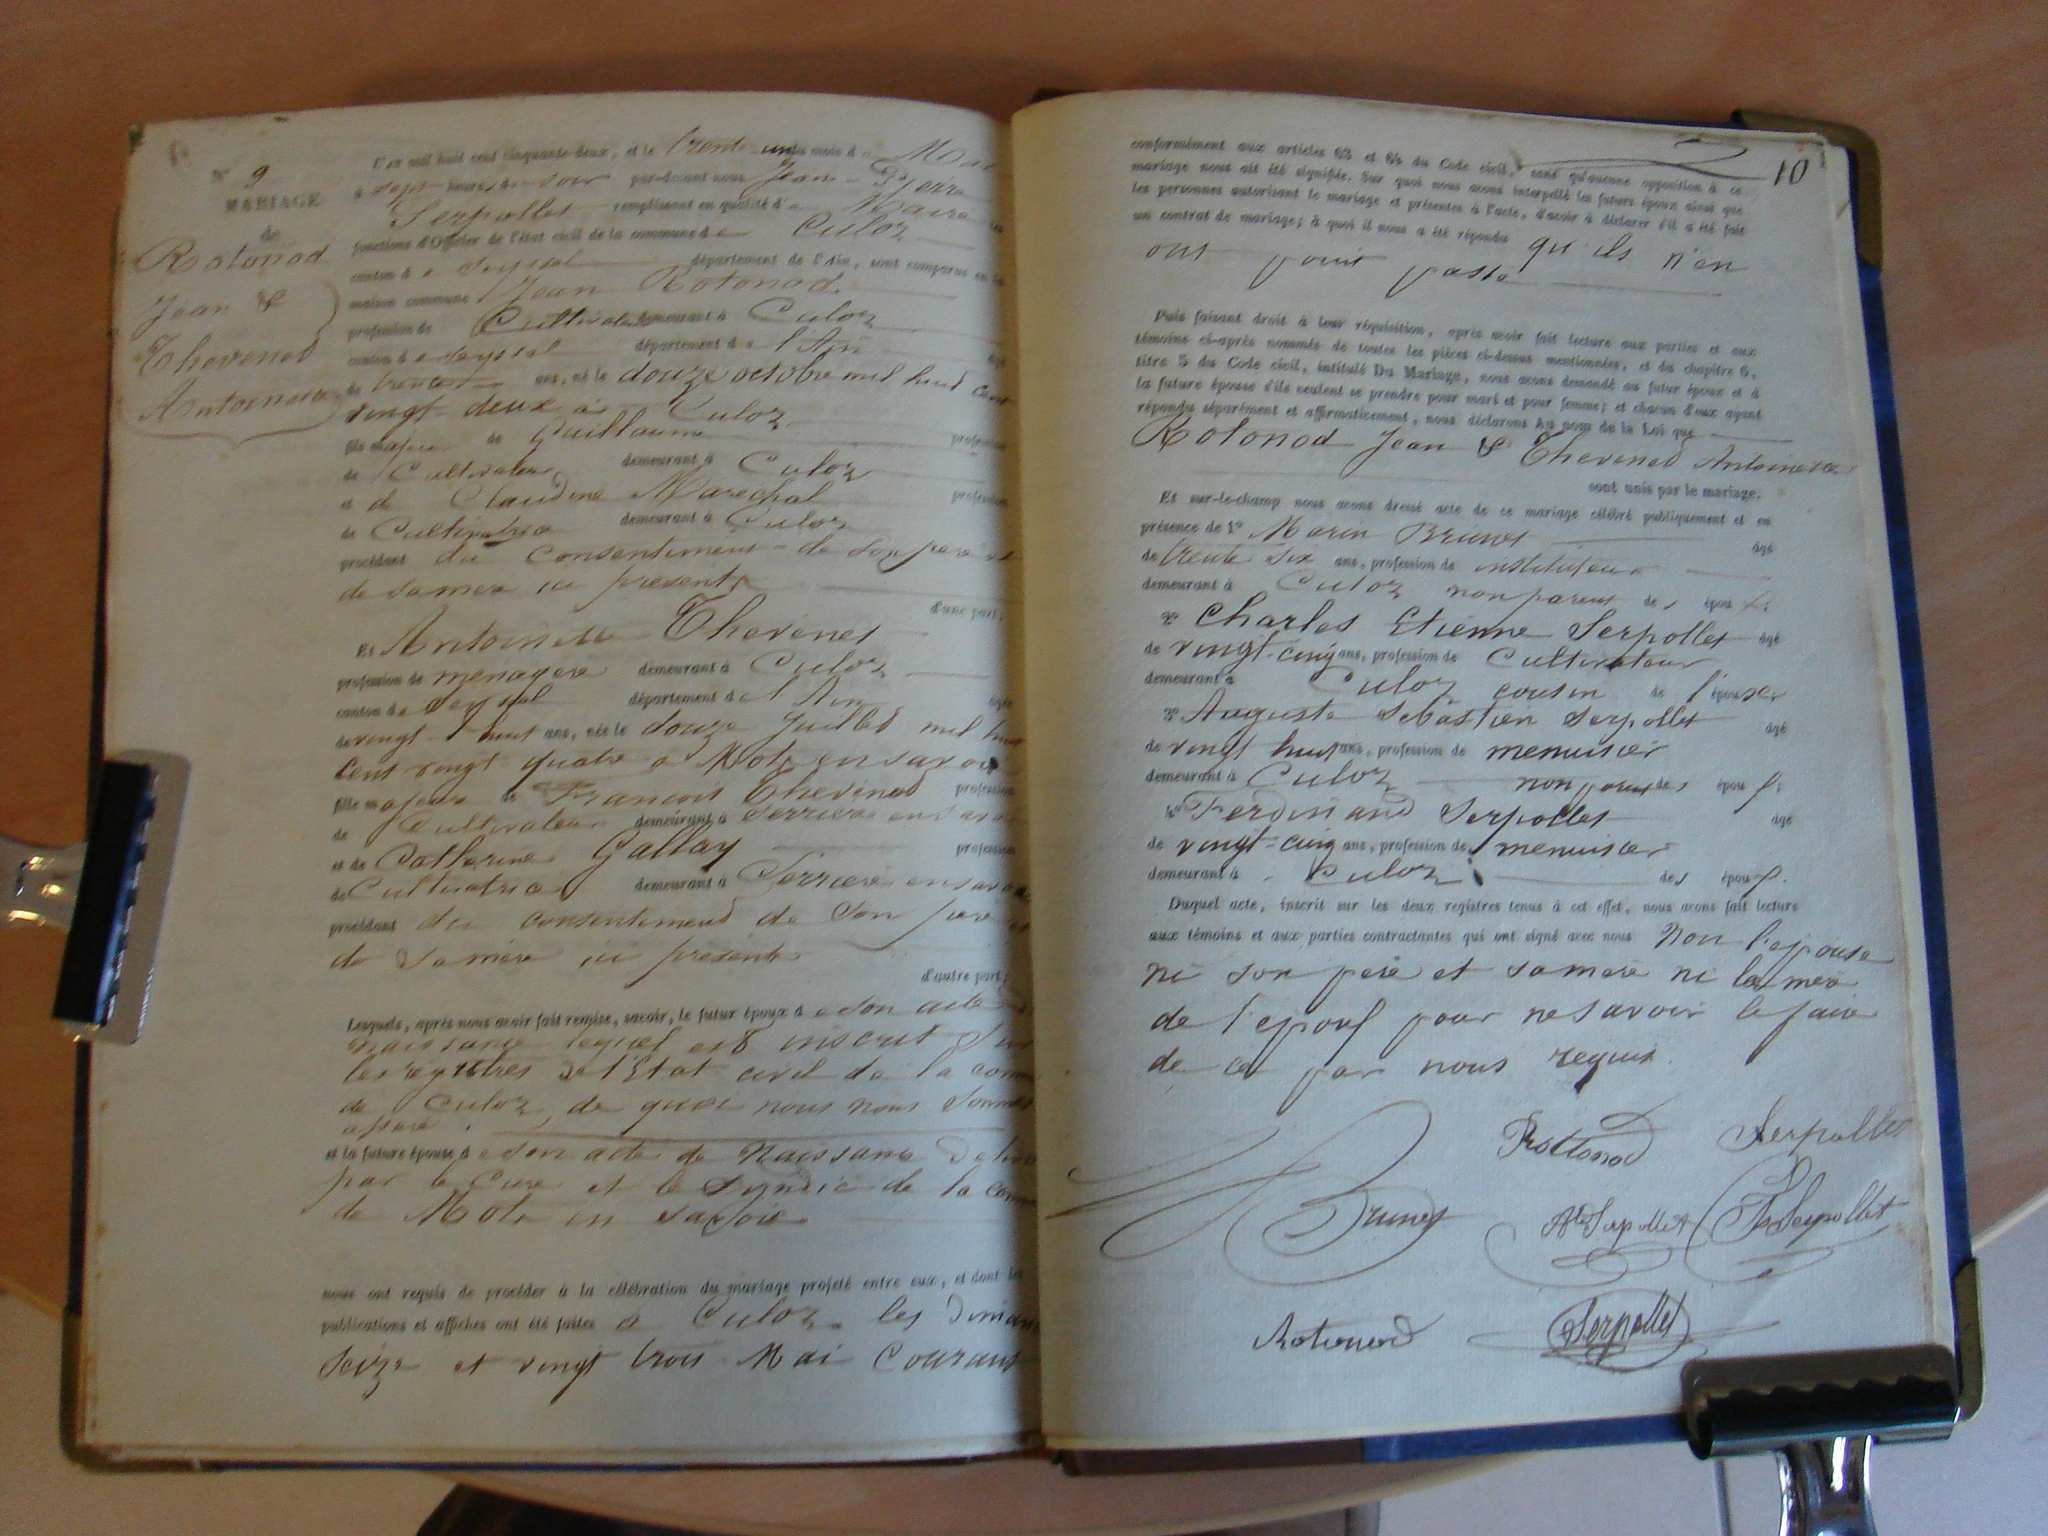 N° 9
MARIAGE
de
Rotonod
Jean &
Thevenod
Antoinette
L'an mil huit cent cinquante-deux, et le trente un du mois d e Mai
à sept heures du soir par-devant nous Jean-Pierre
Serpollet remplissant en qualité d e Maire les
fonctions d'Officier de l'état civil de la commune d e Culoz
canton d e Seyssel département de l'Ain, sont comparus en la
maison commune Jean Rotonod
profession de Cultivateur demeurant à Culoz
canton d e Seyssel département d e l'Ain âgé
de ans, né le douze octobre mil huit cent
vingt deux à Culoz
fils majeur de Guillaume profession
de Cultivateur demeurant à Culoz
et d e Claudine Marechal profession
de Cultivatrice demeurant à Culoz
procédant du consentement de son père et
de sa mère ici présents
d'une part;
Et Antoinette Thevenet
profession de menagere demeurant à Culoz
canton d e Seyssel département d e l'Ain âgée
de vingt-huit ans, née le douze Juillet mil huit
cent vingt quatre a Motz en savoie
fille majeure de François Thevenod profession
de Cultivateur demeurant à Serriere en savoie
et de Catherine Gallay profession
de Cultivatrice demeurant à Serriere en savoie
procédant du consentement de son père et
de sa mère ici présents
d'autre part;
Lesquels, après nous avoir fait remise, savoir, le futur époux d e son acte de
naissance lequel est inscrit sur
les registres de l'Etat civil de la commune
de Culoz de quoi nous nous sommes
assuré
et la future épouse d e son acte de Naissance délivré
par le Curé et le Syndic de la commune
de Motz en savoie
nous ont requis de procéder à la célébration du mariage projeté entre eux, et dont les
publications et affiches ont été faites a Culoz les dimanches
seize et vingt trois Mai courant
10
conformément aux articles 63 et 64 du Code civil, sans qu'aucune opposition à ce
mariage nous ait été signifiée. Sur quoi nous avons interpellé les futurs époux ainsi que
les personnes autorisant le mariage et présentes à l'acte, d'avoir à déclarer s'il a été fait
un contrat de mariage; à quoi il nous a été répondu qu'ils n'en
ont point passé
Puis faisant droit à leur réquisition, après avoir fait lecture aux parties et aux
témoins ci-après nommés de toutes les pièces ci-dessus mentionnées, et du chapitre 6,
titre 5 du Code civil, intitulé Du Mariage, nous avons demandé au futur époux et à
la future épouse s'ils veulent se prendre pour mari et pour femme; et chacun d'eux ayant
répondu séparément et affirmativement, nous déclarons au nom de la Loi que
Rotonod Jean & Thevenod Antoinette
sont unis par le mariage.
Et sur-le-champ nous avons dressé acte de ce mariage célébré publiquement et en
présence de 1° Marin Brunet âgé
de trente six ans, profession de instituteur
demeurant à Culoz non parent de s épou x;
2° Charles Etienne Serpollet âgé
de vingt-cinq ans, profession de Cultivateur
demeurant à Culoz cousin de l'épouse
3° Auguste Sebastien Serpollet âgé
de vingt huit ans, profession de menuisier
demeurant à Culoz non parent des époux;
4° Ferdinand Serpollet âgé
de vingt-cinq ans, profession de menuisier
demeurant à Culoz des époux.
Duquel acte, inscrit sur les deux registres tenus à cet effet, nous avons fait lecture
aux témoins et aux parties contractantes qui ont signé avec nous Non l'épouse
ni son père et sa mère ni la mère
de l'époux pour ne savoir le faire
de ce par nous requis.
Rottonod Serpollet
Brunet Serpollet Serpollet
Rotonod Serpollet